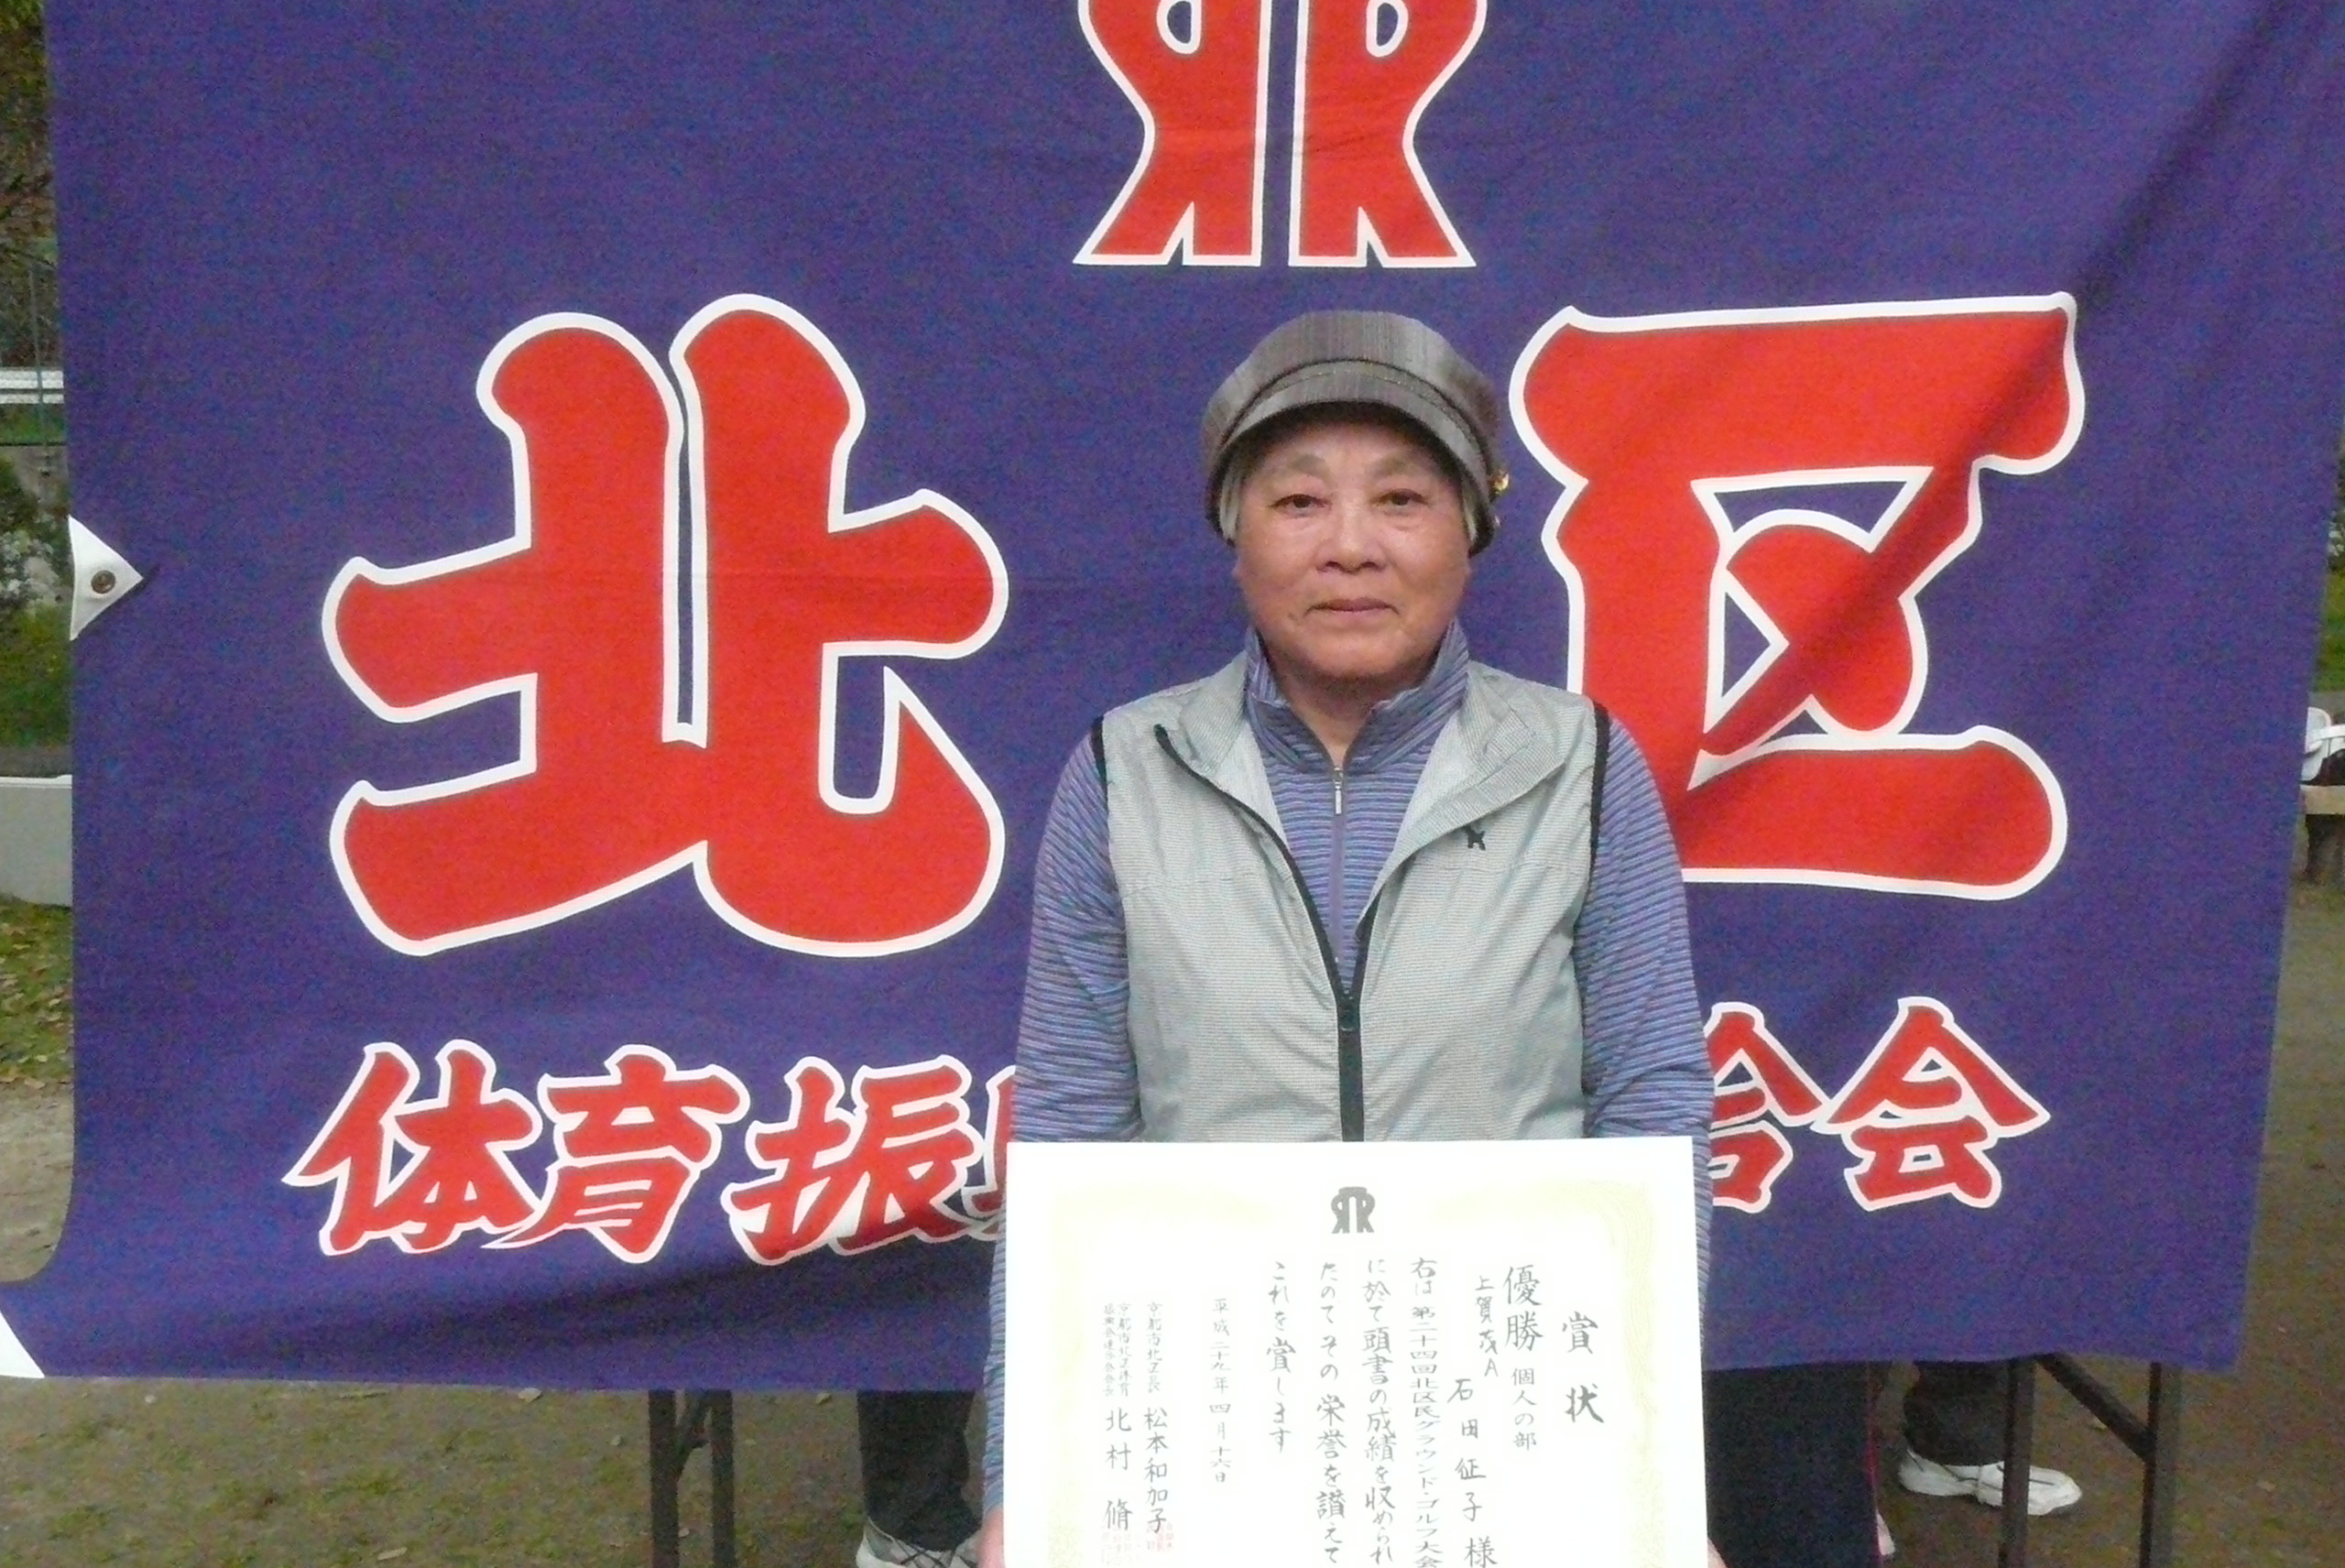 北区
体育振
会
賞状
優勝 個人の部
上賀茂A
石田征子様
右は第二十四回北区民グラウンド・ゴルフ大会
に於て頭書の成績を収められ
たのでその栄誉を讃えて
これを賞します
平成二十九年四月十六日
京都市北区長 松本和加子
京都市北区体育
振興会連合会会長 北村 脩